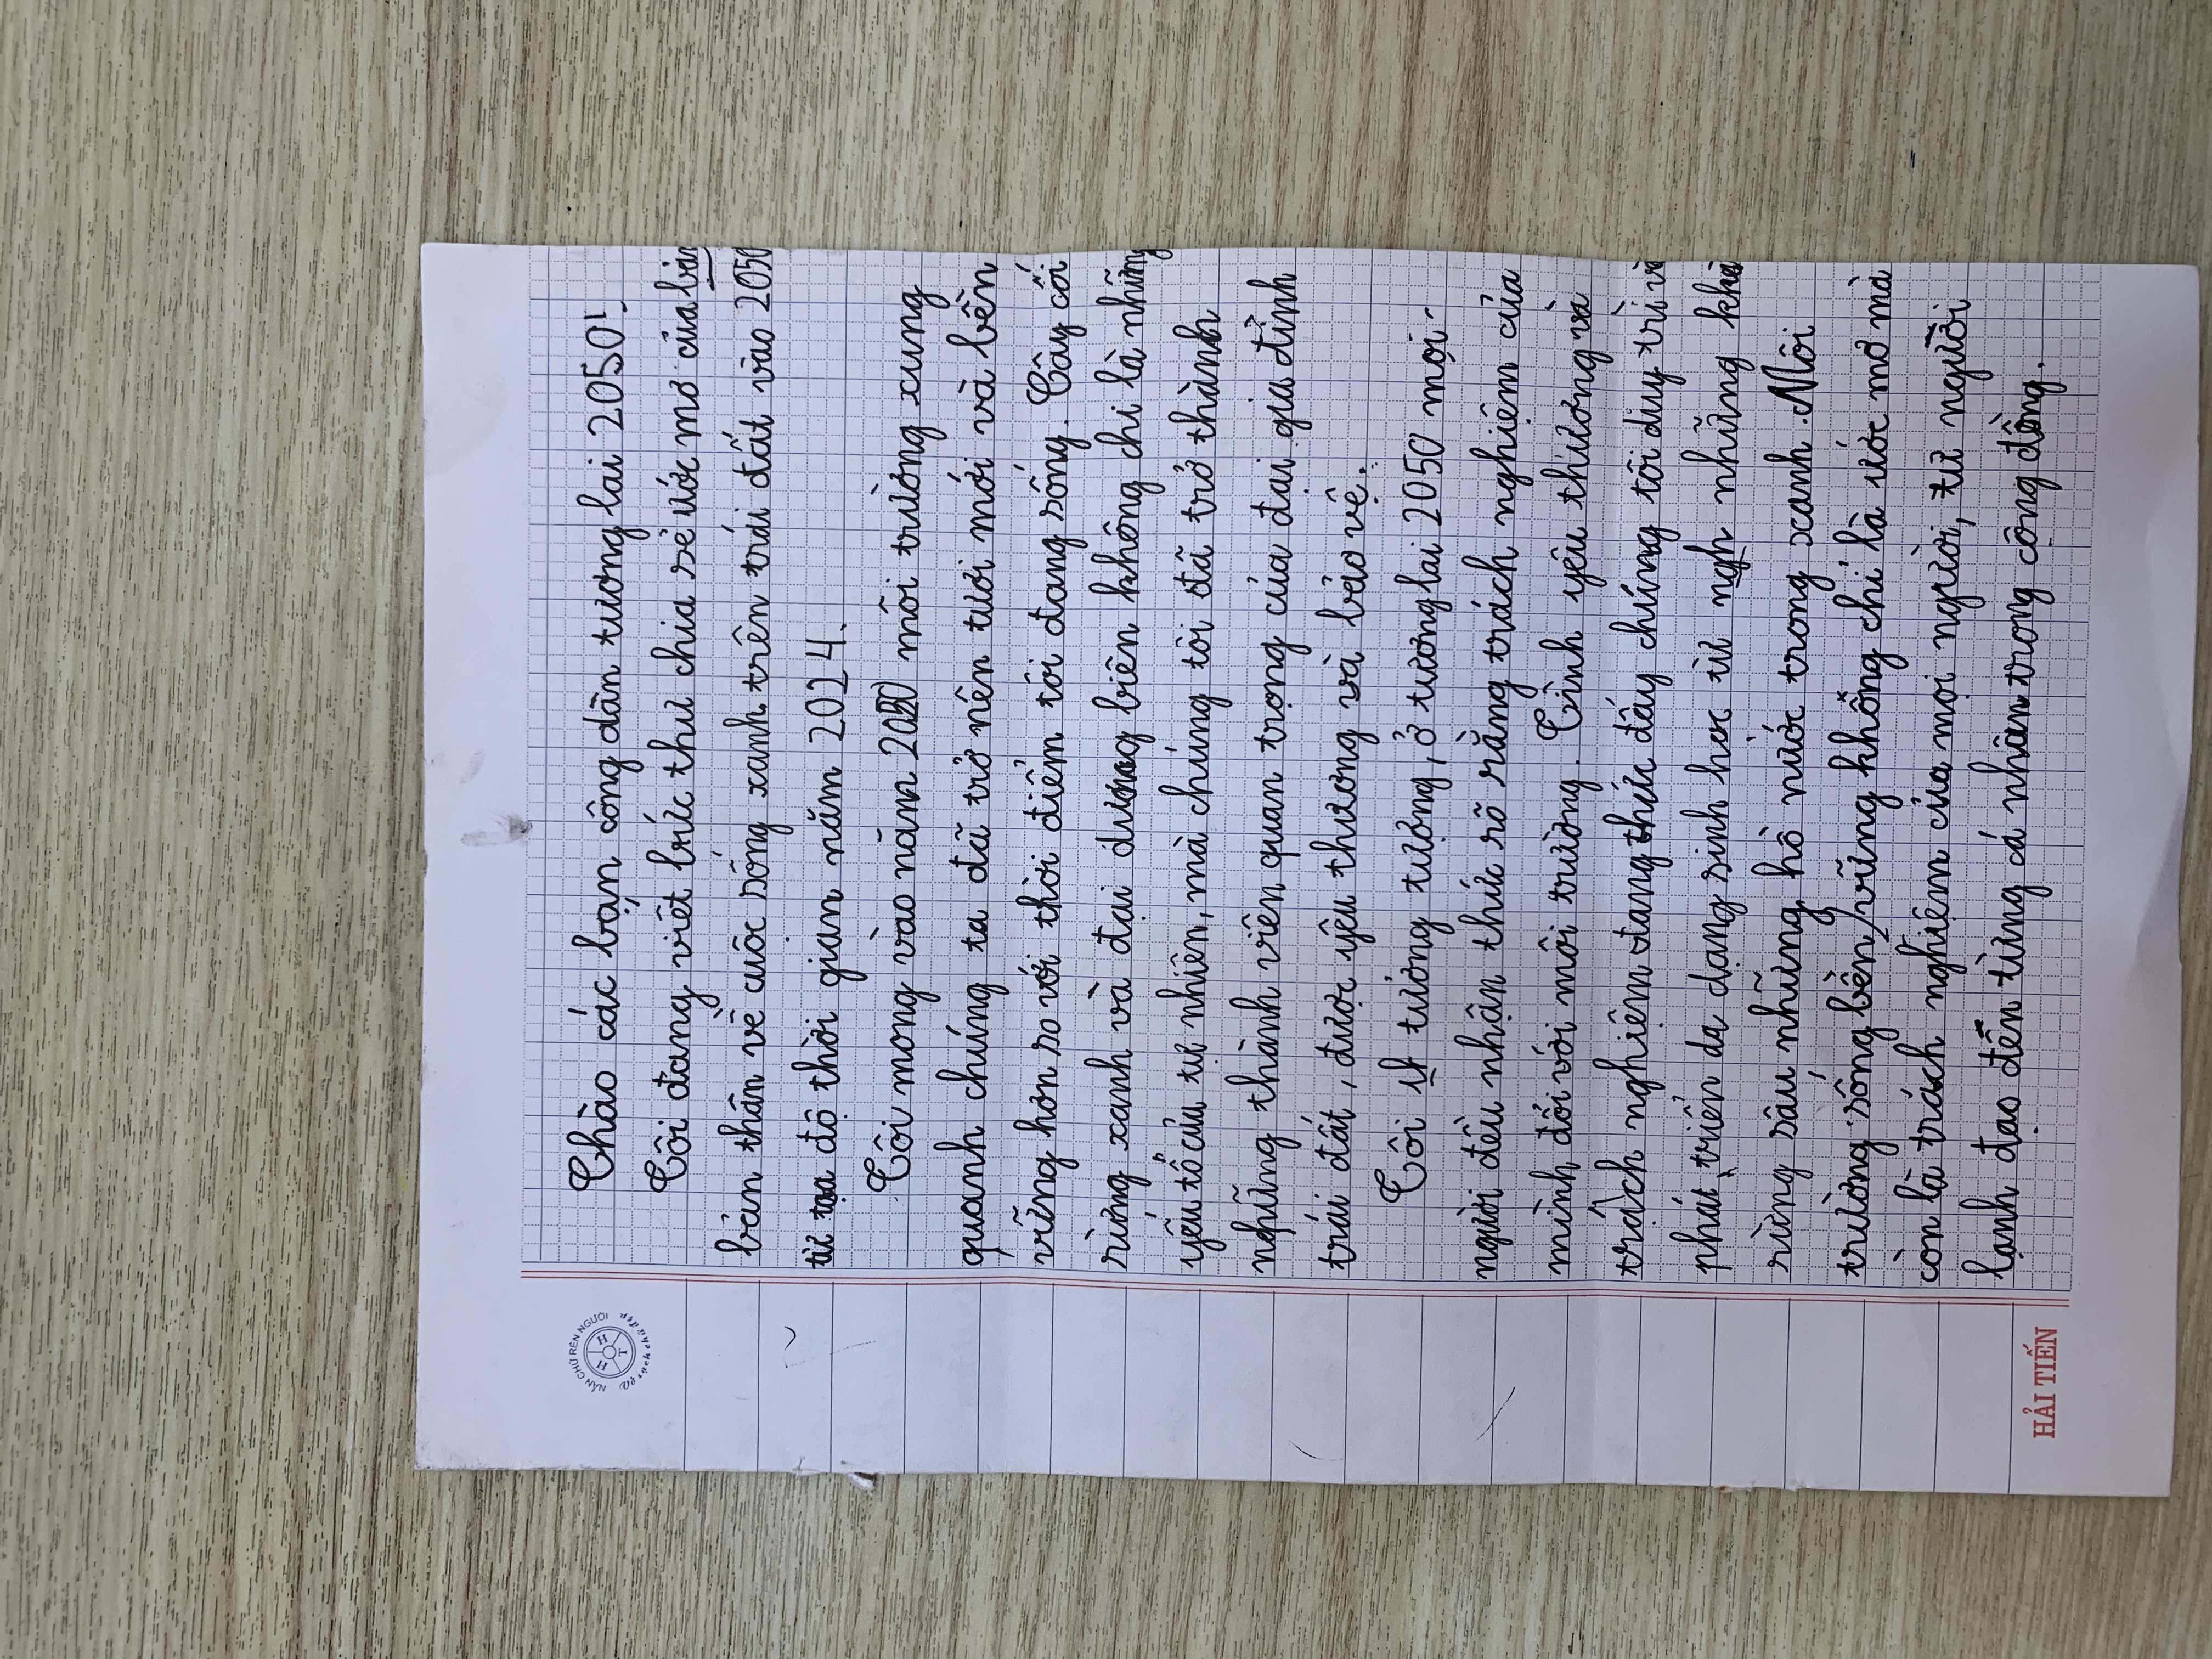 NẮN CHỮ RÈN NGƯỜI
Chào các bạn công dân tương lai 2050!
Tôi đang viết bức thư chia sẻ ước mơ của bản
bản thân về cuộc sống xanh trên trái đất vào 2050
từ tọa độ thời gian năm 2024.
Tôi mong vào năm 2050 môi trường xung
quanh chúng ta đã trở nên tươi mới và bền
vững hơn so với thời điểm tôi đang sống. Cây cối
rừng xanh và đại dương biên không chi là những
yếu tố của tự nhiên, mà chúng tôi đã trở thành
nghững thành viên quan trọng của đại gia đình
trái đất, được yêu thương và bảo vệ.
Tôi tưởng tượng, ở tương lai 2050 mọi
người đều nhận thức rõ rằng trách nghiệm của
mình đối với môi trường. Tình yêu thương và
trách nghiệm đang thúc đẩy chúng tôi duy trì và
phát triển da dạng sinh học từ ngh những khu
rừng sâu những hồ nước trong xanh. Môi
trường sống bền vững không chỉ là ước mơ mà
còn là trách nghiệm của mọi người, từ người
lạnh đạo đến từng cá nhân trong cộng đồng.
HẢI TIẾN